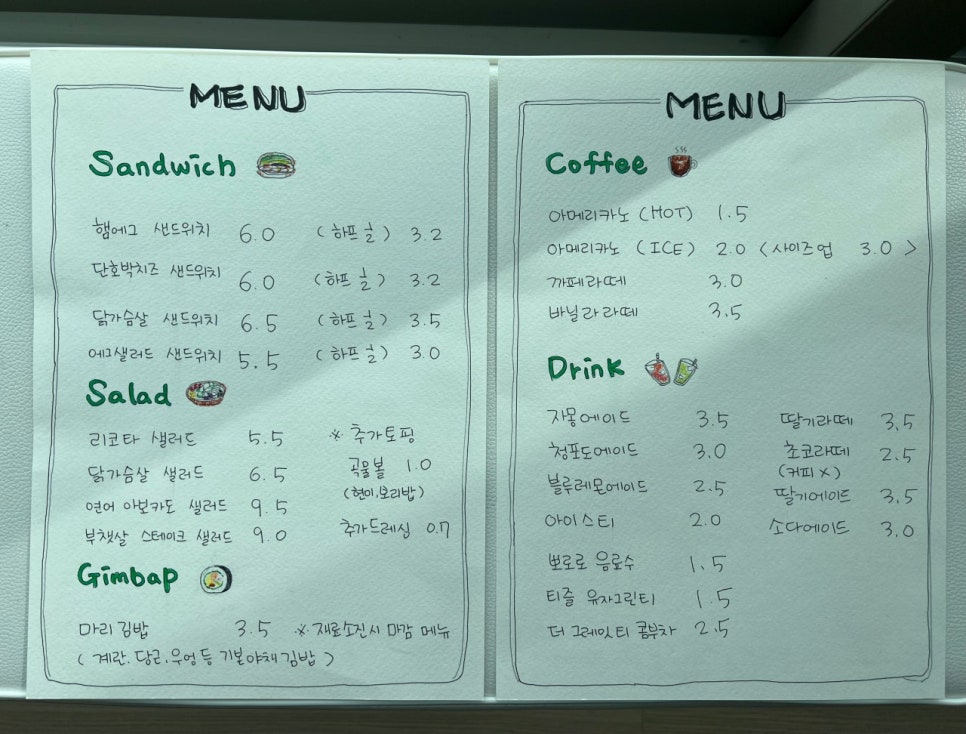 MENU
Sandwich
햄에그 샌드위치 6.0 (하프 1/2) 3.2
단호박치즈 샌드위치 6.0 (하프 1/2) 3.2
닭가슴살 샌드위치 6.5 (하프 1/2) 3.5
에그샐러드 샌드위치 5.5 (하프 1/2) 3.0
Salad
리코타 샐러드 5.5 ※ 추가토핑
닭가슴살 샐러드 6.5 곡물볼 1.0
(현미,보리밥)
연어 아보카도 샐러드 9.5
부챗살 스테이크 샐러드 9.0 추가드레싱 0.7
Gimbap
마리김밥 3.5 ※ 재료소진시 마감 메뉴
(계란.당근.우엉등 기본야채김밥)
MENU
Coffee
아메리카노 (HOT) 1.5
아메리카노 (ICE) 2.0 <사이즈업 3.0>
까페라떼 3.0
바닐라라떼 3.5
Drink
자몽에이드 3.5 딸기라떼 3.5
청포도에이드 3.0 초코라떼 2.5
(커피 x)
블루레몬에이드 2.5 딸기에이드 3.5
아이스티 2.0 소다에이드 3.0
뽀로로 음료수 1.5
티즐 유자그린티 1.5
더 그레잇티 콤부차 2.5